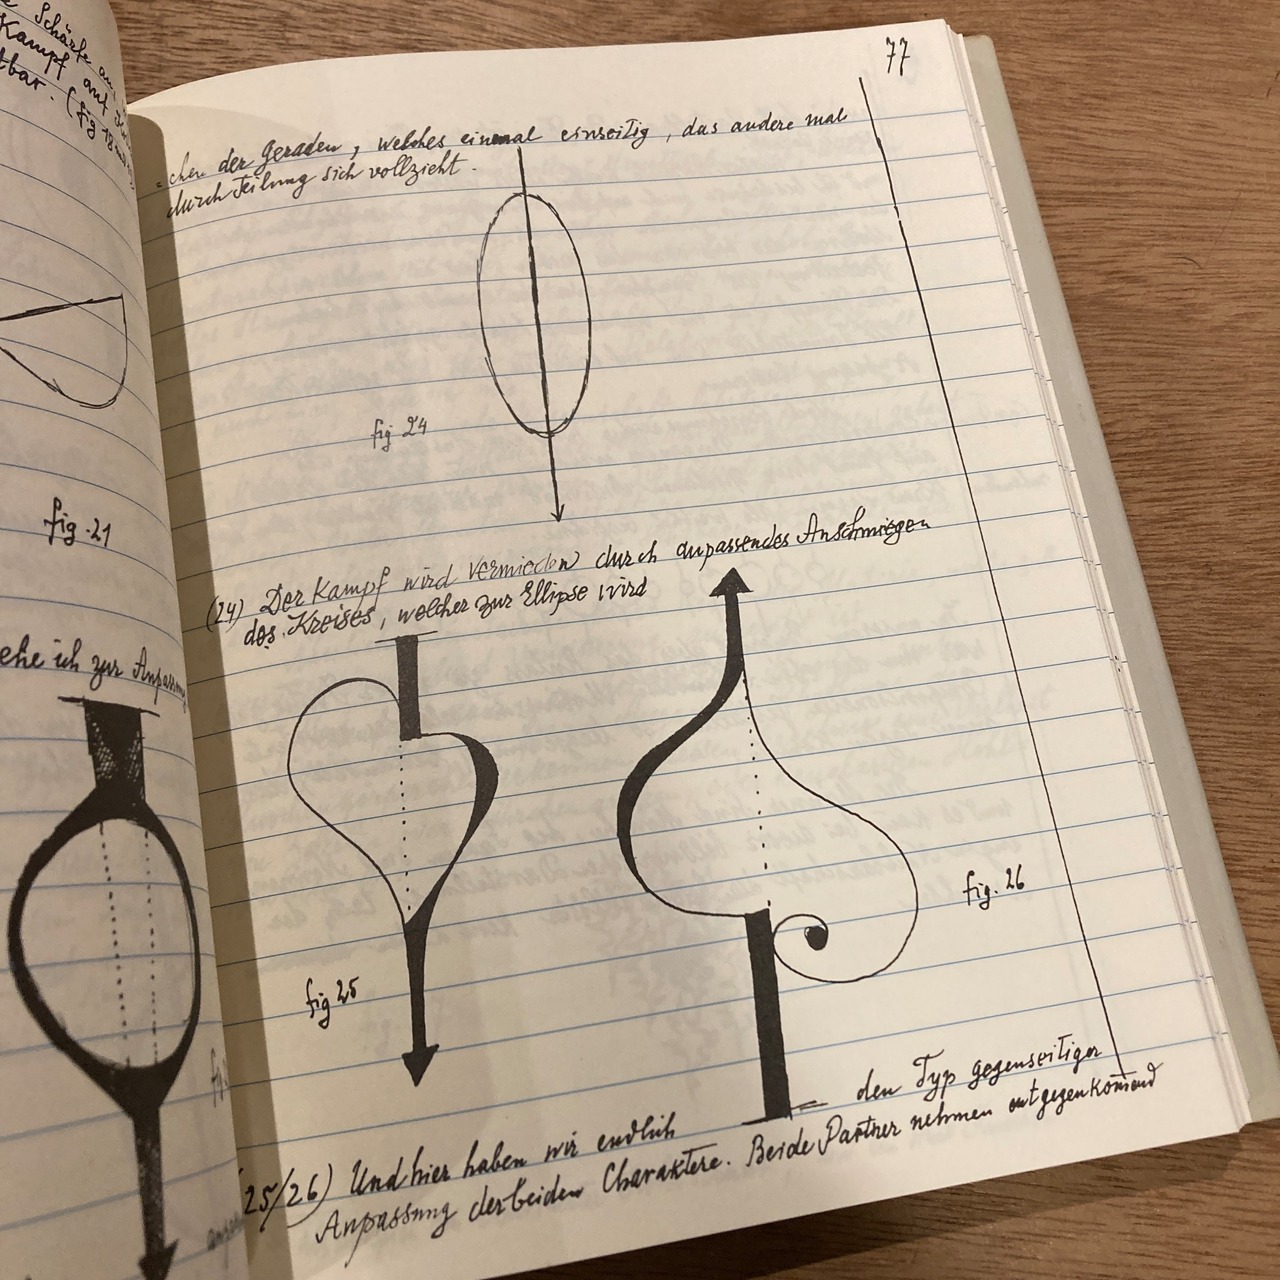 Schärfe
Kampf auf
tbar. (fig 18
fig. 21
ehe ich zur Anpassung
77
=chen der Geraden, welches einmal einseitig, das andere mal
durch Teilung sich vollzieht.
fig 24
(24) Der Kampf wird vermieden durch anpassendes Anschmiegen
des Kreises, welcher zur Ellipse wird
fig 25
fig. 26
(25/26) Und hier haben wir endlich den Typ gegenseitiger
Anpassung der beiden Charaktere. Beide Partner nehmen entgegenkomend